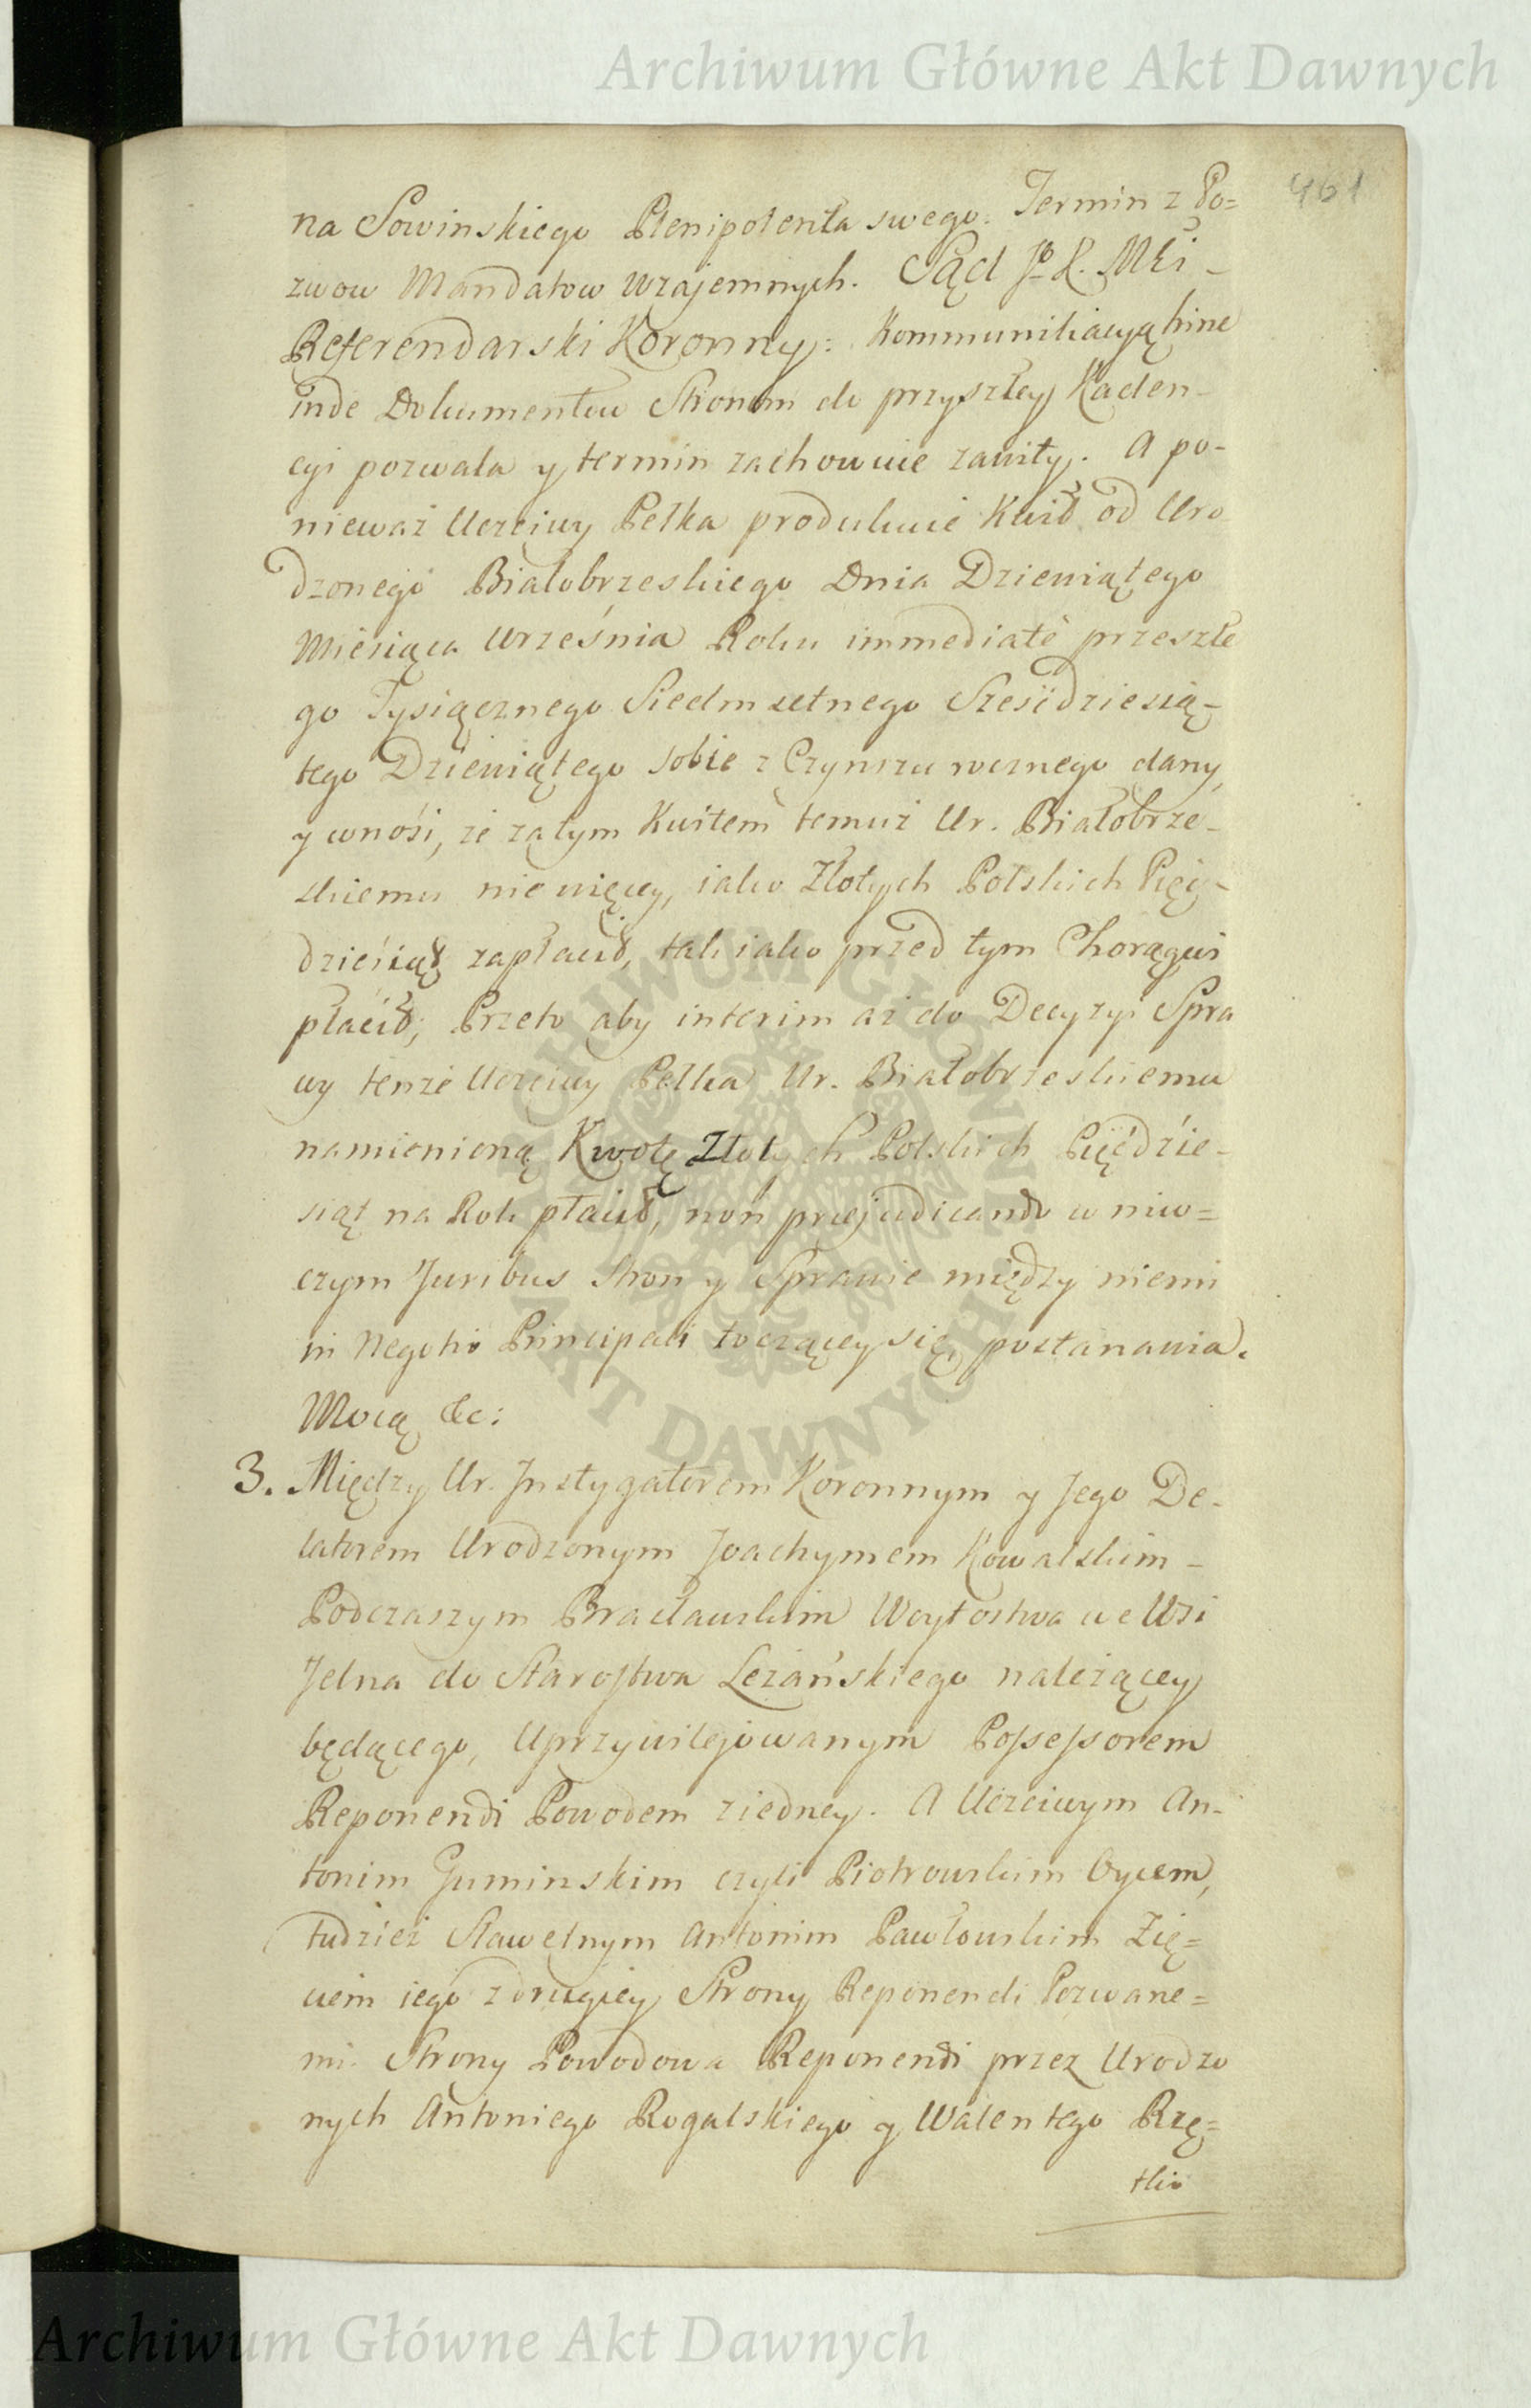 Archiwum Główne Akt Dawnych
461
na Sowinskiego Plenipotenta swego. Termin z Po=
zwow Mandatow wzajemnych. Sąd Jo K. Mci
Referendarski Koronny: Kommunikacyą hinc
inde Dokumentow Stronom do przyszłey Kaden-
cyi pozwala y termin zachowuie zawity. A po-
nieważ Uczciwy Pełka produkuie Kwit od Uro
dzonego Białobrzeskiego Dnia Dziewiątego
Miesiąca Września Roku immediate przeszłe
go Tysiącznego Siedmsetnego Sześćdziesią-
tego Dziewiątego sobie z Czynszu rocznego dany,
y wnosi, że za tym Kwitem temuż Ur. Białobrze-
skiemu nie więcey, iako Złotych Polskich Pięć-
dziesiąt zapłacił, tak iako przed tym Chorągwi
płacił; Przeto aby interim aż do Decyzyi Spra
wy tenże Uczciwy Pełka Ur. Białobrzeskiemu
namienioną Kwotę Złotych Polskich Pięćdzie-
siąt na Rok płacił, non praejudicando w niw=
czym Juribus Stron y Sprawie między niemi
in Negotio Principali toczącey się, postanawia.
Mocą &c:
3. Między Ur. Instygatorem Koronnym y Jego De-
latorem Urodzonym Joachymem Kowalskim -
Podczaszym Bracławskim Woytostwa we Wsi
Jelna do Starostwa Leżańskiego należącey
będącego, Uprzywilejowanym Possessorem
Reponendi Powodem z iedney. A Uczciwym An-
tonim Guminskim czyli Piotrowskim Oycem,
tudzież Sławetnym Antonim Pawłowskim Zię=
ciem iego z drugiey Strony Reponendi Pozwane=
mi. Strony Powodowa Reponendi przez Urodzo
nych Antoniego Rogalskiego y Walentego Rzę=
tkie
ARCHIWUM GŁÓWNE
AKT DAWNYCH
Archiwum Główne Akt Dawnych